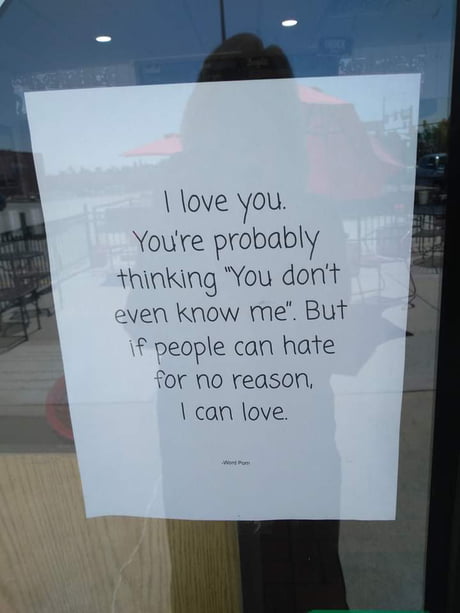 I love you.
You're probably
thinking "You don't
even know me". But
if people can hate
for no reason,
I can love.
-Word Porn